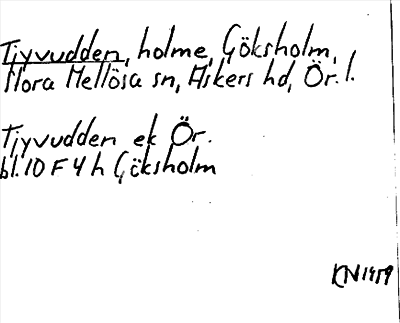 Tjyvudden, holme, Göksholm,
Stora Mellösa sn, Askers hd, Ör. l.
Tjyvudden ek Ör.
bl. 10 F 4 h Göksholm
KN 1959